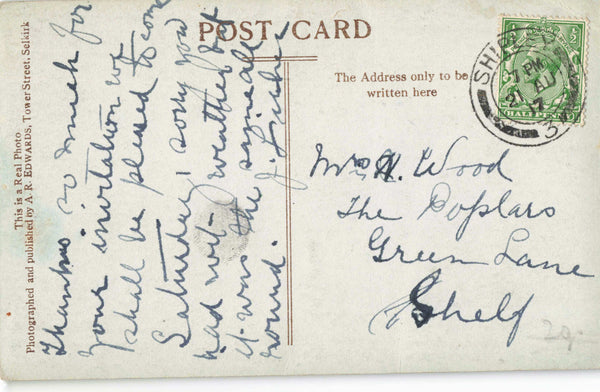 POST CARD
This is a Real Photo
Photographed and published by A. R. EDWARDS, Tower Street, Selkirk
The Address only to be
written here
HALFPENNY
7 PM
AU
17
Thanks so much for
your invitation we
shall be pleased to come
Saturday, sorry you
had wet weather but
it was the same all
round. J. Fisher
Mrs H. Wood
The Poplars
Green Lane
Shelf